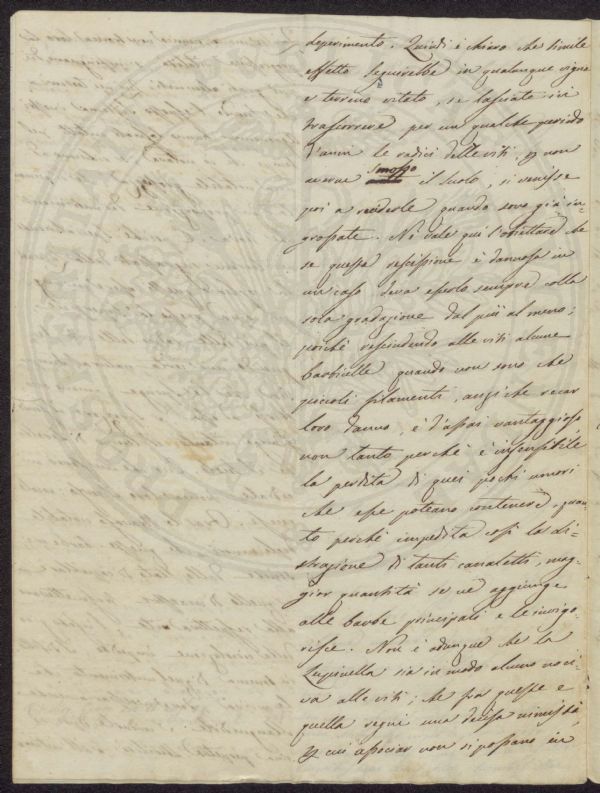 deperimento. Quindi è chiaro che simile
effetto seguirebbe in qualunque vigna
e terreno vitato, se lasciate ivi
trascorrere per un qualche periodo
d'anni le radici delle viti, e non
averne smosso il suolo, si venisse
poi a reciderle quando sono già in-
grossate. Nè vale qui l'obiettare che
se questa rescissione è dannosa in
un caso deva esserlo sempre colla
sola gradazione dal più al meno;
poichè rescindendo alle viti alcune
barbicelle quando non sono che
piccoli filamenti, anzi che recar
loro danno, è d'assai vantaggioso,
non tanto perchè è insensibile
la perdita di quei pochi umori
che esse poteano contenere, quan-
to perchè impedita così la di-
strazione di tanti canaletti, mag-
gior quantità se ne aggiunge
alle barbe principali e le invigo-
risce. Non è adunque che la
Lupinella sia in modo alcuno noci-
va alle viti; che fra queste e
quella regni una decisa inimistà,
e cui associar non si possano in